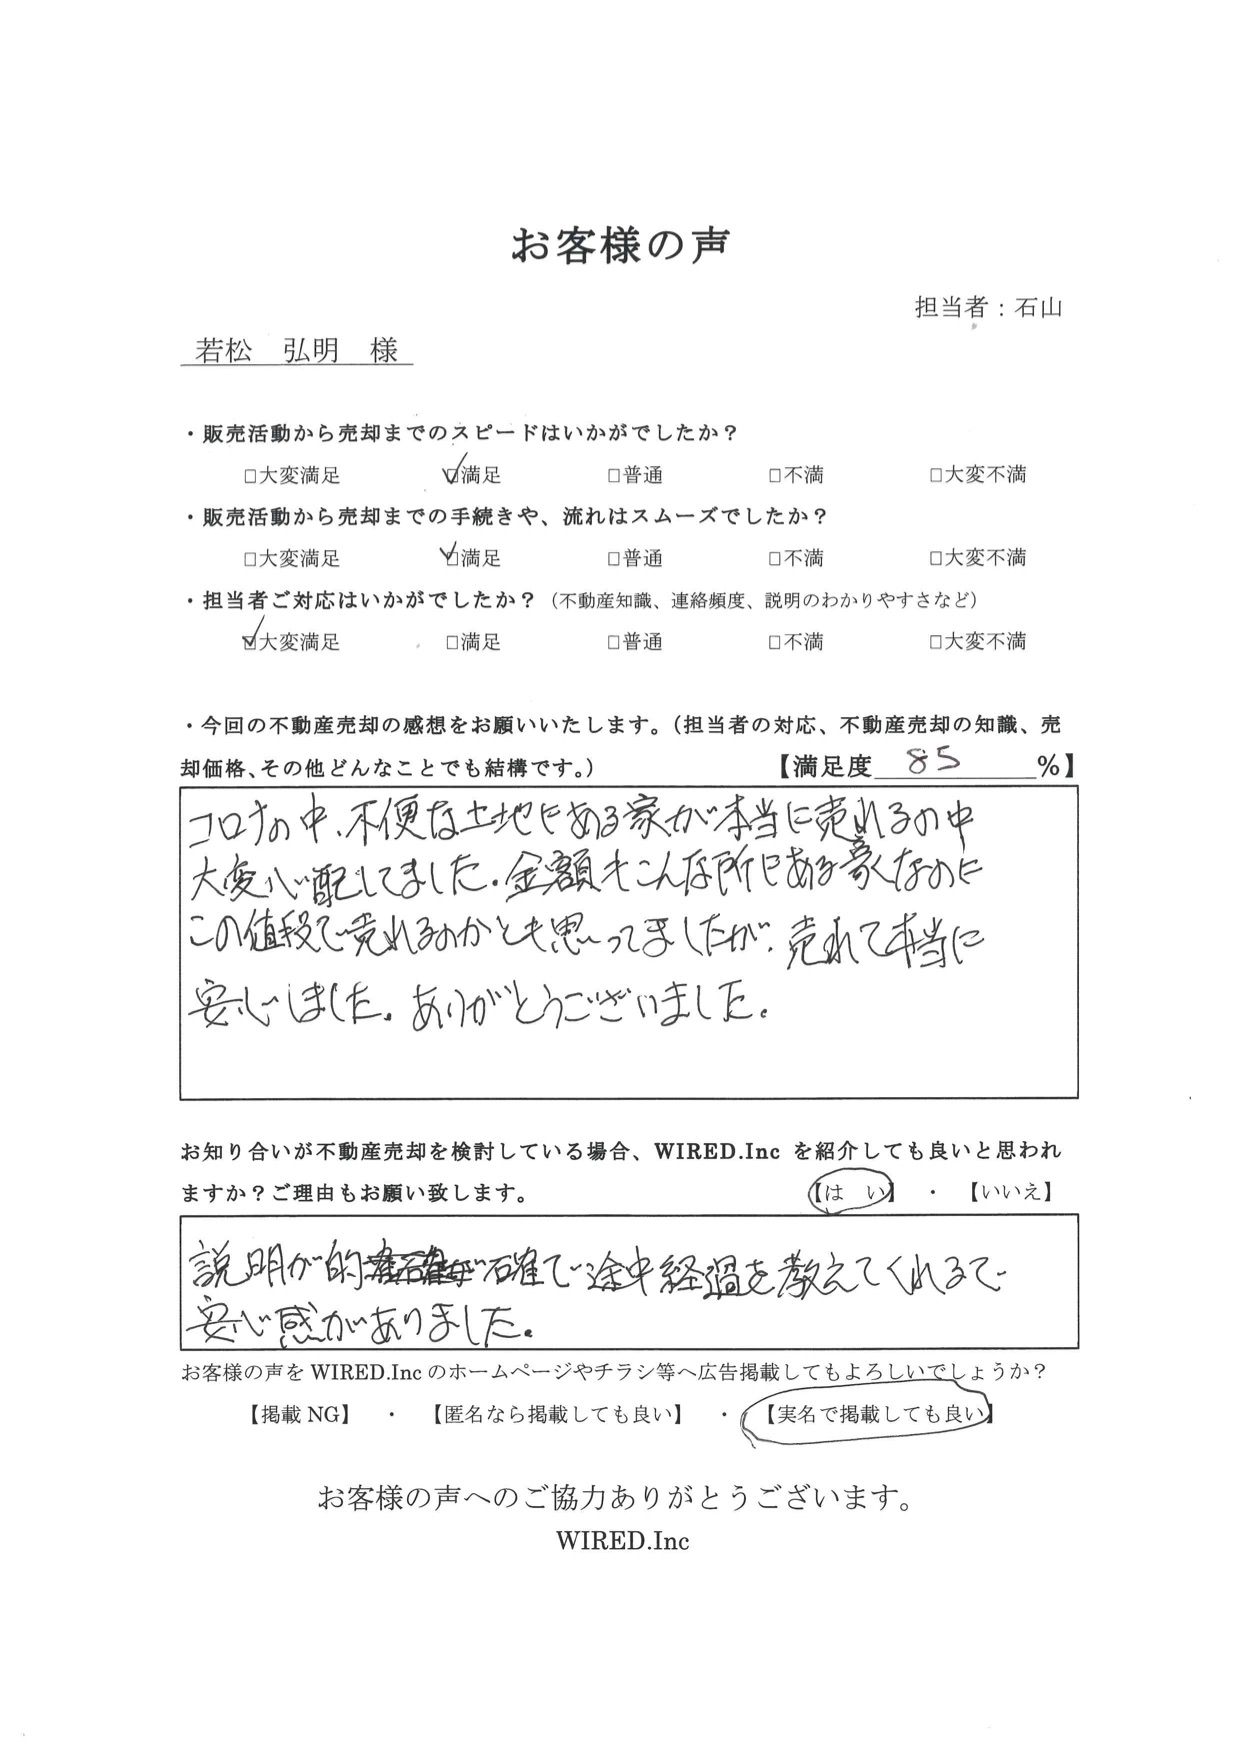 お客様の声
担当者：石山
若松　弘明　様
・販売活動から売却までのスピードはいかがでしたか？
□大変満足 ☑満足 □普通 □不満 □大変不満
・販売活動から売却までの手続きや、流れはスムーズでしたか？
□大変満足 ☑満足 □普通 □不満 □大変不満
・担当者ご対応はいかがでしたか？（不動産知識、連絡頻度、説明のわかりやすさなど）
☑大変満足 □満足 □普通 □不満 □大変不満
・今回の不動産売却の感想をお願いいたします。（担当者の対応、不動産売却の知識、売
却価格、その他どんなことでも結構です。） 【満足度 85 %】
コロナの中、不便な土地にある家が本当に売れるの中
大変心配してました。金額もこんな所にある家なのに
この値段で売れるのかとも思ってましたが、売れて本当に
安心しました。ありがとうございました。
お知り合いが不動産売却を検討している場合、WIRED.Inc を紹介しても良いと思われ
ますか？ご理由もお願い致します。 【は　い】 ・ 【いいえ】
説明が的確で途中経過を教えてくれるで
安心感がありました。
お客様の声を WIRED.Inc のホームページやチラシ等へ広告掲載してもよろしいでしょうか？
【掲載 NG】 ・ 【匿名なら掲載しても良い】 ・ 【実名で掲載しても良い】
お客様の声へのご協力ありがとうございます。
WIRED.Inc